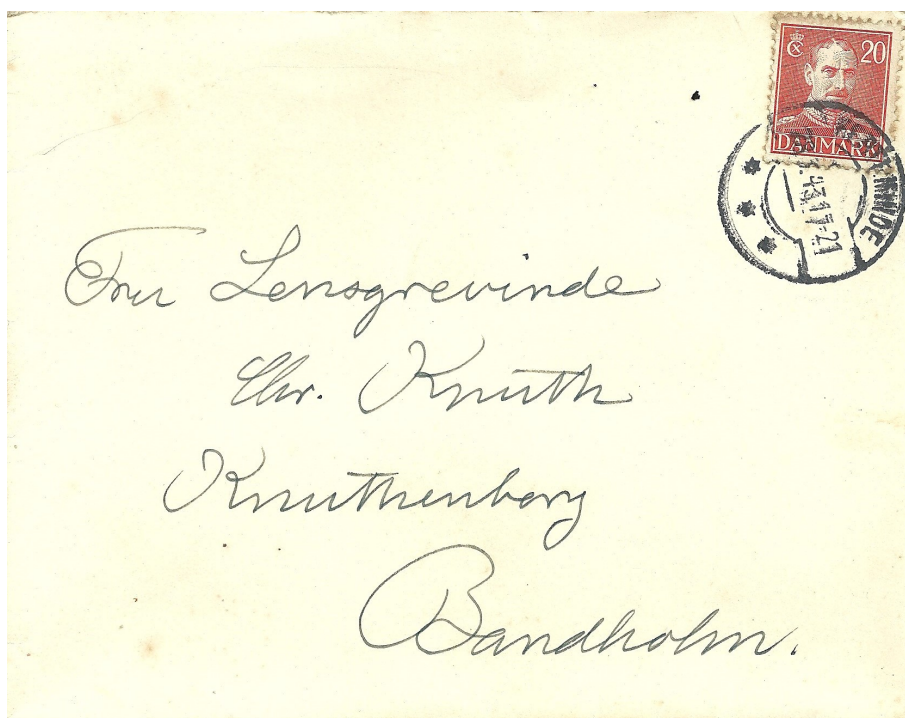 20
DANMARK
KERTEMINDE
17-21
Fru Lensgrevinde
Chr. Knuth
Knuthenborg
Bandholm.